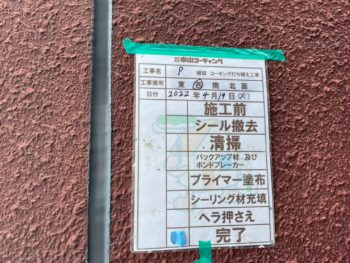 ㈱中山コーティング
工事名 P 様邸 コーキング打ち替え工事
工事箇所 東 西 南 北面
日付 2022年4月19日(火)
施工前
シール撤去
清掃
バックアップ材 及び
ボンドブレーカー
プライマー塗布
シーリング材充填
ヘラ押さえ
完了